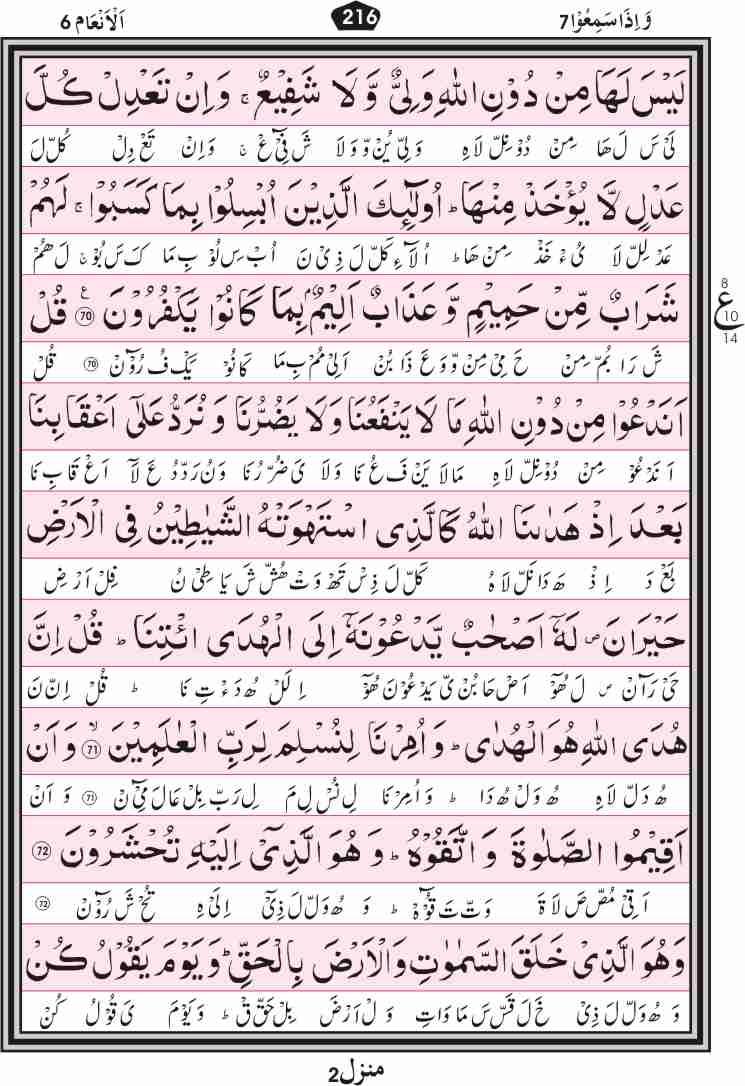 وَ اِذَا سَمِعُوْا 7
216
اَلْاَنْعَام 6
لَيْسَ لَهَا مِنْ دُوْنِ اللّٰهِ وَلِيٌّ وَّ لَا شَفِيْعٌ ۚ وَ اِنْ تَعْدِلْ كُلَّ
لَىْ سَ لَ هَا مِنْ دُوْ نِلّ لَاهِ وَلِىّ يُنْ وَّ وَ لَا شَ فِىْٓ عْ ۚ وَ اِنْ تَعْ دِلْ كُلّ لَ
عَدْلٍ لَّا يُؤْخَذْ مِنْهَا ؕ اُولٰٓئِكَ الَّذِيْنَ اُبْسِلُوْا بِمَا كَسَبُوْا ۚ لَهُمْ
عَدْ لِلّ لَا يُىءْ خَذْ مِنْ هَا ؕ اُ لَآ ءِ كَلّ لَ ذِىْ نَ اُبْ سِ لُوْ بِ مَا كَ سَ بُوْ ۚ لَ هُمْ
شَرَابٌ مِّنْ حَمِيْمٍ وَّ عَذَابٌ اَلِيْمٌۢ بِمَا كَانُوْا يَكْفُرُوْنَ ع 70 قُلْ
8
ع
10
14
شَ رَا بُمّ مِنْ حَ مِىْ مِنْ وَّ وَ عَ ذَا بُنْ اَ لِىْ مُمْ بِ مَا كَا نُوْ يَكْ فُ رُوْٓنْ 70 قُلْ
اَنَدْعُوْا مِنْ دُوْنِ اللّٰهِ مَا لَا يَنْفَعُنَا وَ لَا يَضُرُّنَا وَ نُرَدُّ عَلٰٓى اَعْقَابِنَا
اَ نَدْ عُوْ مِنْ دُوْ نِلّ لَاهِ مَا لَا يَنْ فَ عُ نَا وَ لَا يَ ضُرّ رُ نَا وَ نُ رَدّ دُ عَ لَآ اَعْ قَا بِ نَا
بَعْدَ اِذْ هَدٰىنَا اللّٰهُ كَالَّذِى اسْتَهْوَتْهُ الشَّيٰطِيْنُ فِى الْاَرْضِ
بَعْ دَ اِذْ هَ دَا نَلّ لَاهُ كَلّ لَ ذِسْ تَهْ وَتْ هُشّ شَ يَا طِىْ نُ فِلْ اَرْ ضِ
حَيْرَانَ ص لَهٗٓ اَصْحٰبٌ يَّدْعُوْنَهٗٓ اِلَى الْهُدَى ائْتِنَا ؕ قُلْ اِنَّ
حَىْ رَآنْ ص لَ هُوْٓ اَصْ حَا بُنْ يَّ يَدْ عُوْ نَ هُوْٓ اِ لَلْ هُ دَءْ تِ نَا ؕ قُلْ اِنّ نَ
هُدَى اللّٰهِ هُوَ الْهُدٰى ؕ وَ اُمِرْنَا لِنُسْلِمَ لِرَبِّ الْعٰلَمِيْنَ لا 71 وَ اَنْ
هُ دَلّ لَاهِ هُ وَلْ هُ دَا ؕ وَ اُ مِرْ نَا لِ نُسْ لِ مَ لِ رَبّ بِلْ عَا لَ مِىْٓ نْ 71 وَ اَنْ
اَقِيْمُوا الصَّلٰوةَ وَ اتَّقُوْهُ ؕ وَ هُوَ الَّذِيْٓ اِلَيْهِ تُحْشَرُوْنَ 72
اَ قِىْ مُصّ صَ لَا ةَ وَتّ تَ قُوْٓ هْ ؕ وَ هُ وَلّ لَ ذِىْٓ اِ لَىْ هِ تُحْ شَ رُوْٓنْ 72
وَ هُوَ الَّذِيْ خَلَقَ السَّمٰوٰتِ وَ الْاَرْضَ بِالْحَقِّ ؕ وَ يَوْمَ يَقُوْلُ كُنْ
وَ هُ وَلّ لَ ذِىْ خَ لَ قَسّ سَ مَا وَاتِ وَ لْ اَرْضَ بِلْ حَقّ قْ ؕ وَ يَوْمَ يَ قُوْلُ كُنْ
منزل 2